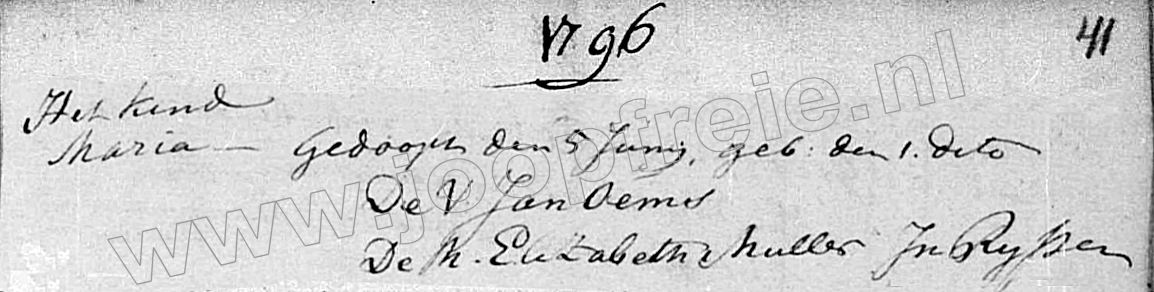 1796
41
Het kind
Maria - Gedoopt den 5 Junij, geb: den 1. dito
De V. Jan Oems
De M. Elizabeth Muller In Ryssen
www.joopfreie.nl